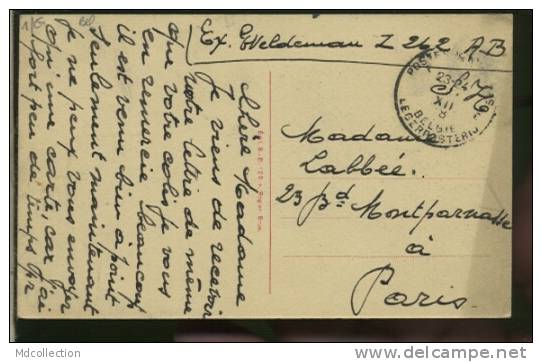 Ex. Weldeman Z 262 A.B
S.M.
BELGIE
LEGERPOSTERIJ
Chère Madame
Je viens de recevoir
votre lettre de même
que votre colis je vous
en remercie beaucoup
il est venu bien à point
Seulement maintenant
je ne peux vous envoyer
qu'une carte, car j'ai
fort peu de temps
Madame
Labbée.
23 Bd Montparnasse
à
Paris.
Mdcollection
www.delcampe.net